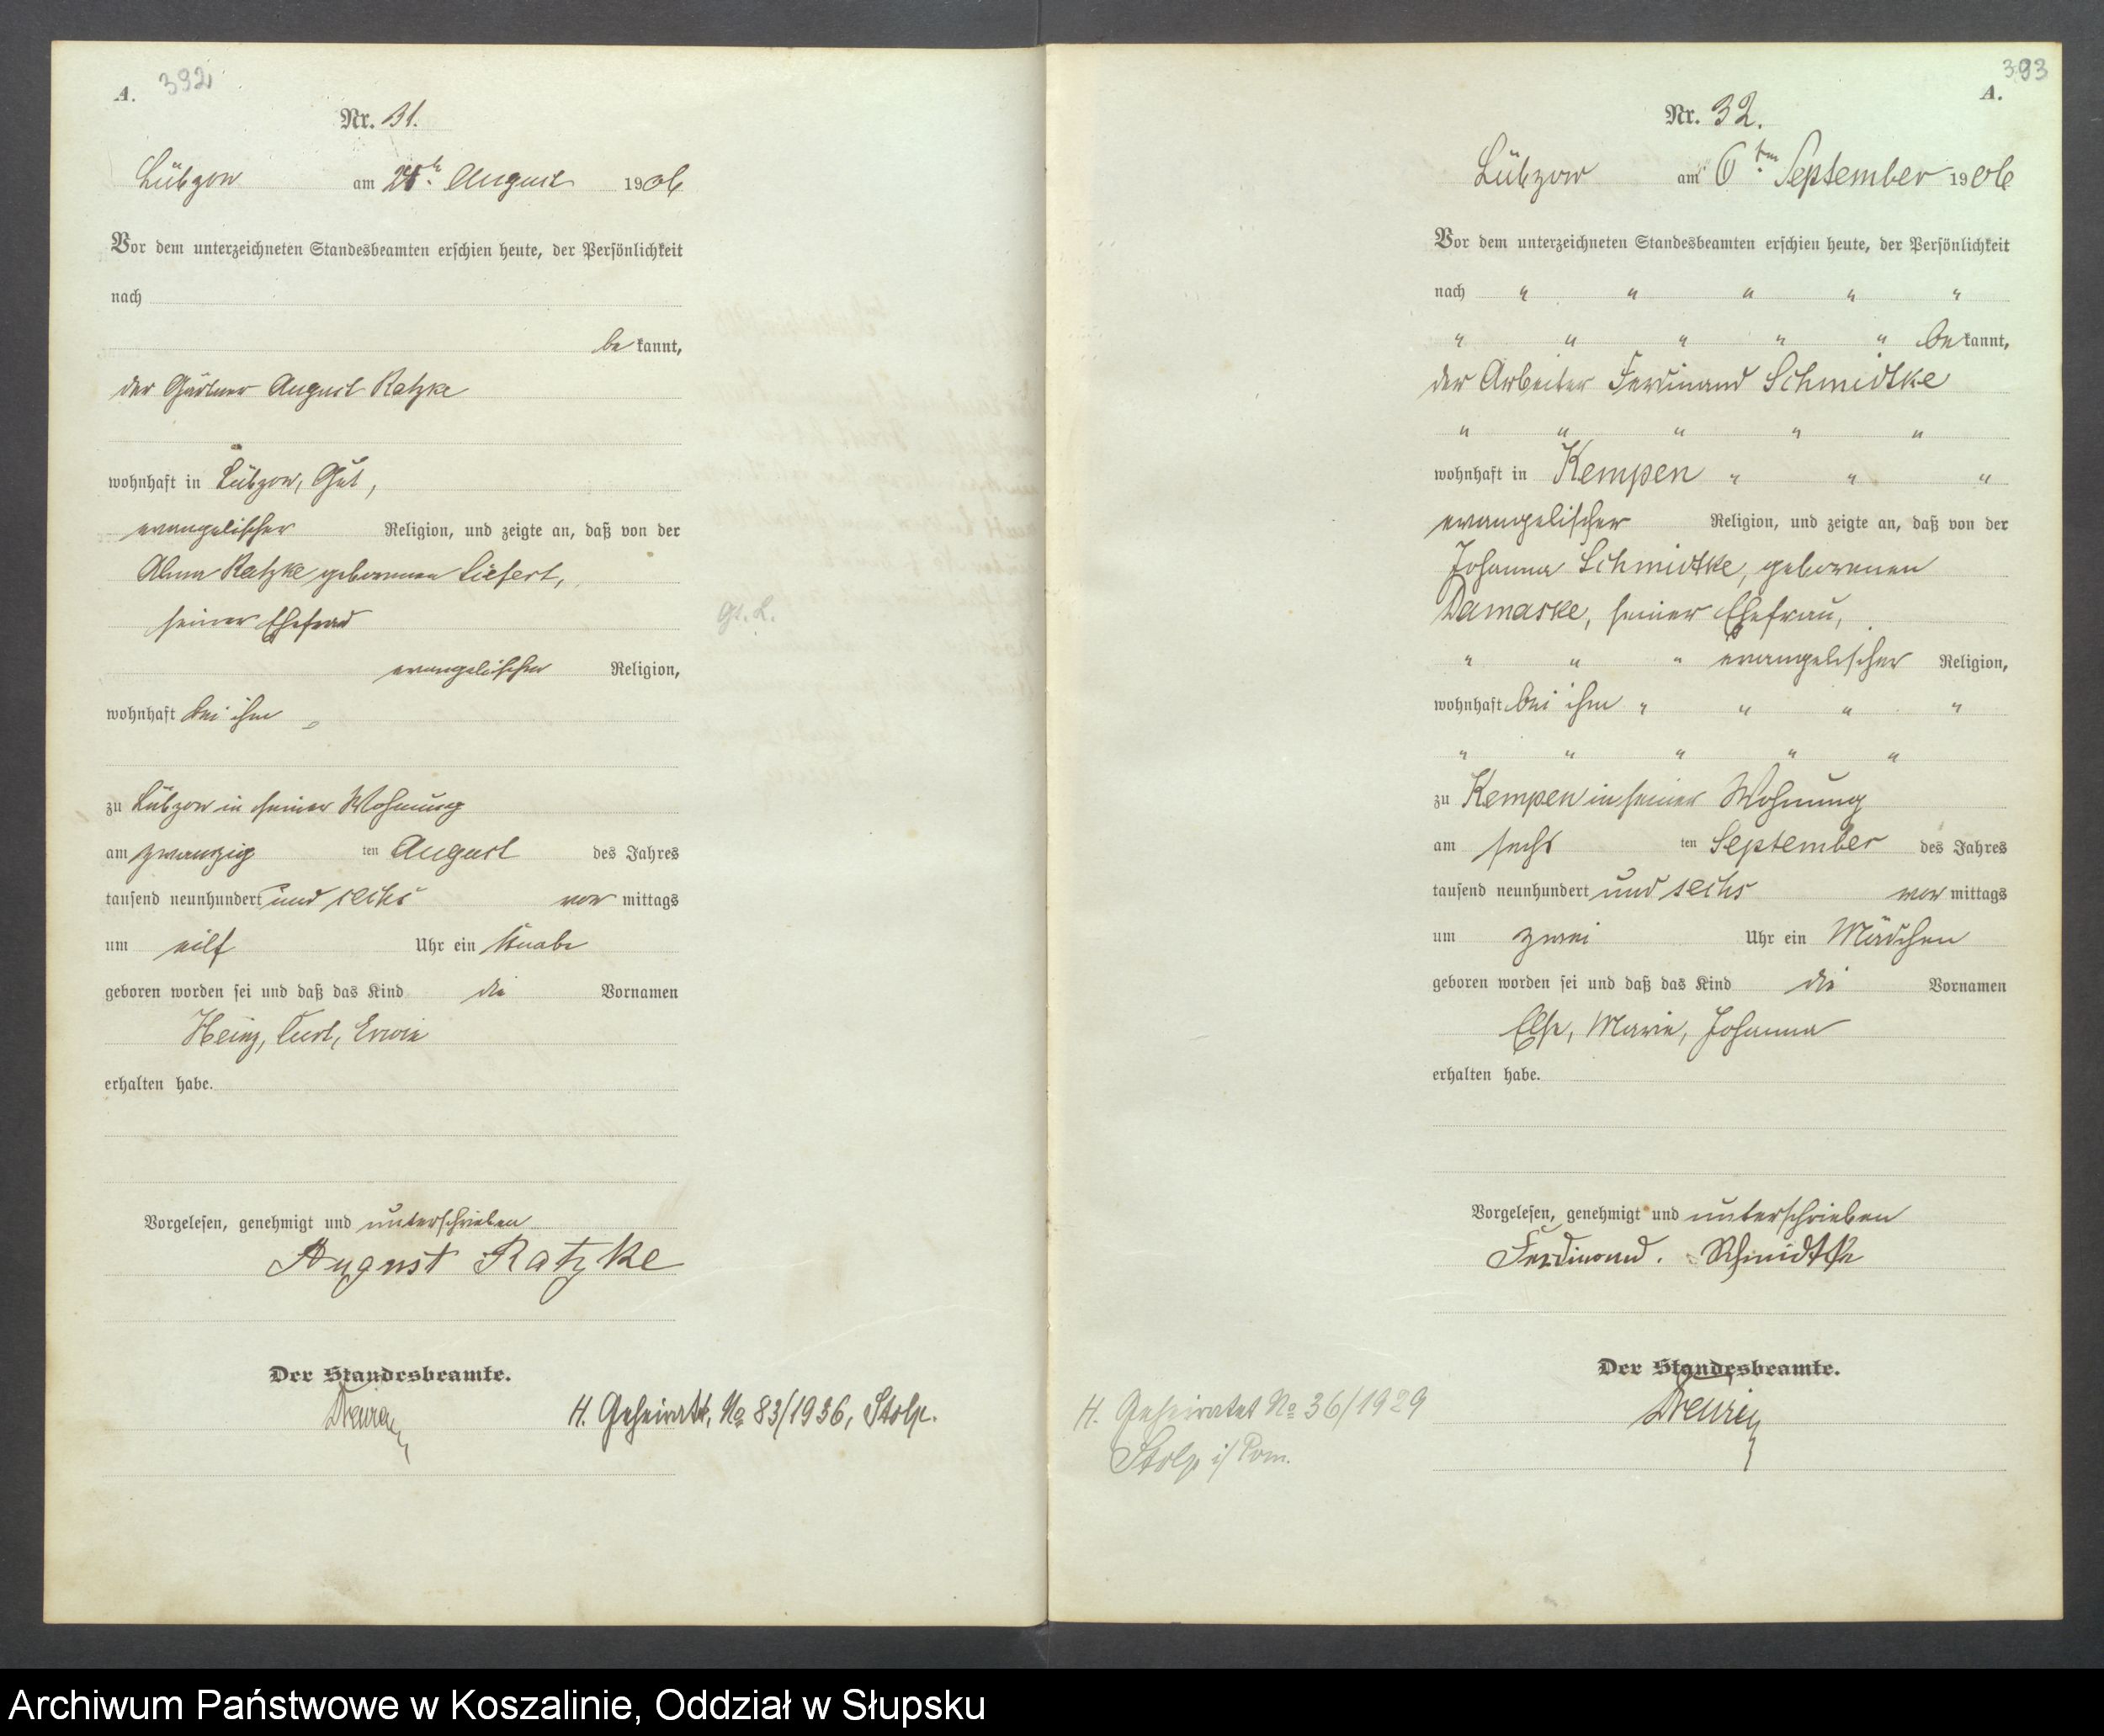 A.
392
Nr. 31.
Lübzow am August 1906
Vor dem unterzeichneten Standesbeamten erschien heute, der Persönlichkeit
nach
be kannt,
der Gärtner August Ratzke
wohnhaft in Lübzow, Gut,
evangelischer Religion, und zeigte an, daß von der
Ratzke geborenen Liefert,
seiner Ehefrau
evangelischer Religion,
wohnhaft bei ihm
zu Lübzow in seiner Wohnung
am zwanzig ten August des Jahres
tausend neunhundert und sechs vor mittags
um eilf Uhr ein Knabe
geboren worden sei und daß das Kind die Vornamen
Heinz, Curt, Erwin
erhalten habe.
Vorgelesen, genehmigt und unterschrieben
August Ratzke
Der Standesbeamte.
H. Geheiratet, No 83/1936, Stolp.
Gt. L.
393
A.
Nr. 32.
Lübzow am 6ten September 1906
Vor dem unterzeichneten Standesbeamten erschien heute, der Persönlichkeit
nach " " " " "
" " " " " be kannt,
der Arbeiter Ferdinand Schmidtke
" " " " "
wohnhaft in Kempen " " "
evangelischer Religion, und zeigte an, daß von der
Johanna Schmidtke, geborenen
Damaske, seiner Ehefrau,
" " " evangelischer Religion,
wohnhaft bei ihm " " " "
" " " " "
zu Kempen in seiner Wohnung
am sechs ten September des Jahres
tausend neunhundert und sechs vor mittags
um zwei Uhr ein Mädchen
geboren worden sei und daß das Kind die Vornamen
Else, Marie, Johanna
erhalten habe.
Vorgelesen, genehmigt und unterschrieben
Ferdinand. Schmidtke
Der Standesbeamte.
H. Geheiratet No 36/1929
Stolp i/ Pom.
Archiwum Państwowe w Koszalinie, Oddział w Słupsku